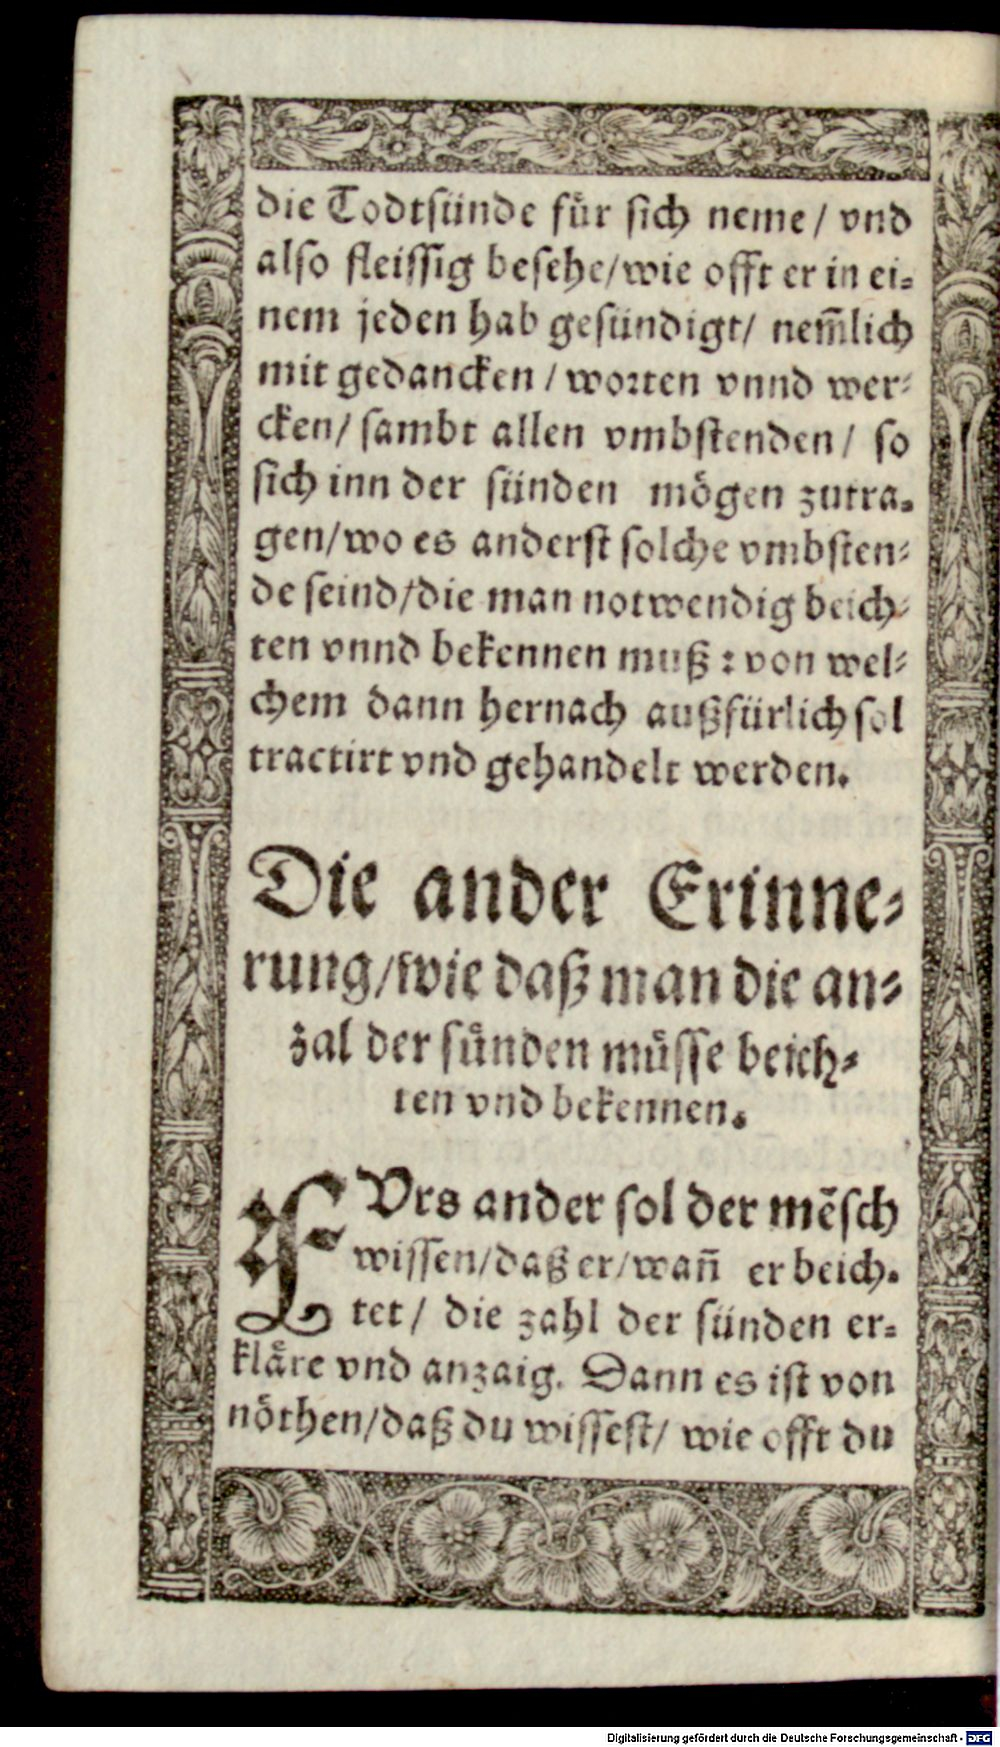 die Todtsünde fůr sich neme / vnd
also fleissig besehe/wie offt er in ei⸗
nem jeden hab gesündigt/ nem̃lich
mit gedancken / worten vnnd wer⸗
cken/ sambt allen vmbstenden / so
sich inn der sünden mögen zutra⸗
gen/wo es anderst solche vmbsten⸗
de seind/die man notwendig beich⸗
ten vnnd bekennen muß : von wel⸗
chem dann hernach außfürlich sol
tractirt vnd gehandelt werden.
Die ander Erinne⸗
rung/wie daß man die an⸗
zal der sůnden můsse beich⸗
ten vnd bekennen.
FVrs ander sol der mẽsch
wissen/daß er/wañ er beich⸗
tet/ die zahl der sünden er⸗
kläre vnd anzaig. Dann es ist von
nöthen/daß du wissest/ wie offt du
Digitalisierung gefördert durch die Deutsche Forschungsgemeinschaft - DFG